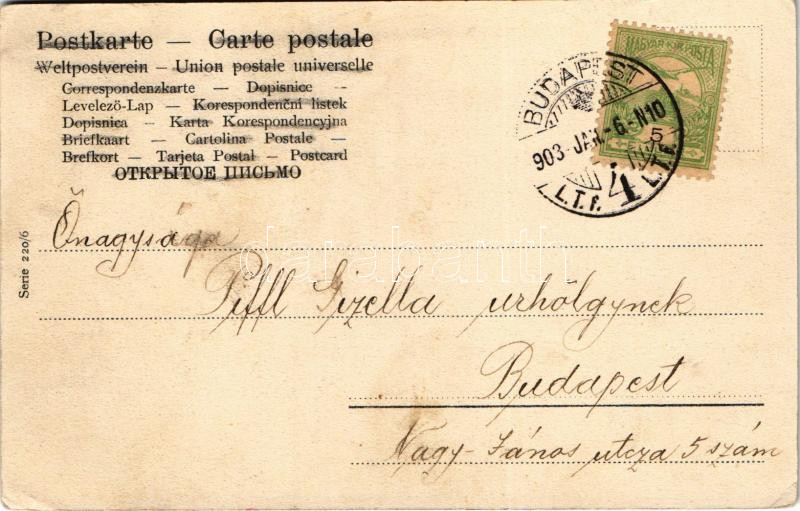 Postkarte — Carte postale
Weltpostverein – Union postale universelle
Correspondenzkarte — Dopisnice –
Levelező-Lap — Korespondenční listek
Dopisnica — Karta Korespondencyjna
Briefkaart — Cartolina Postale –
Brefkort — Tarjeta Postal – Postcard
ОТКРЫТОЕ ПИСЬМО
MAGYAR KIR. POSTA
5
BUDAPEST
903-JAN.-6.-N10
L.T.f. 4 L.T.f.
Serie 220/6
Őnagysága
Piffl Gizella urhölgynek
Budapest
Nagy-János utcza 5 szám
darabanth